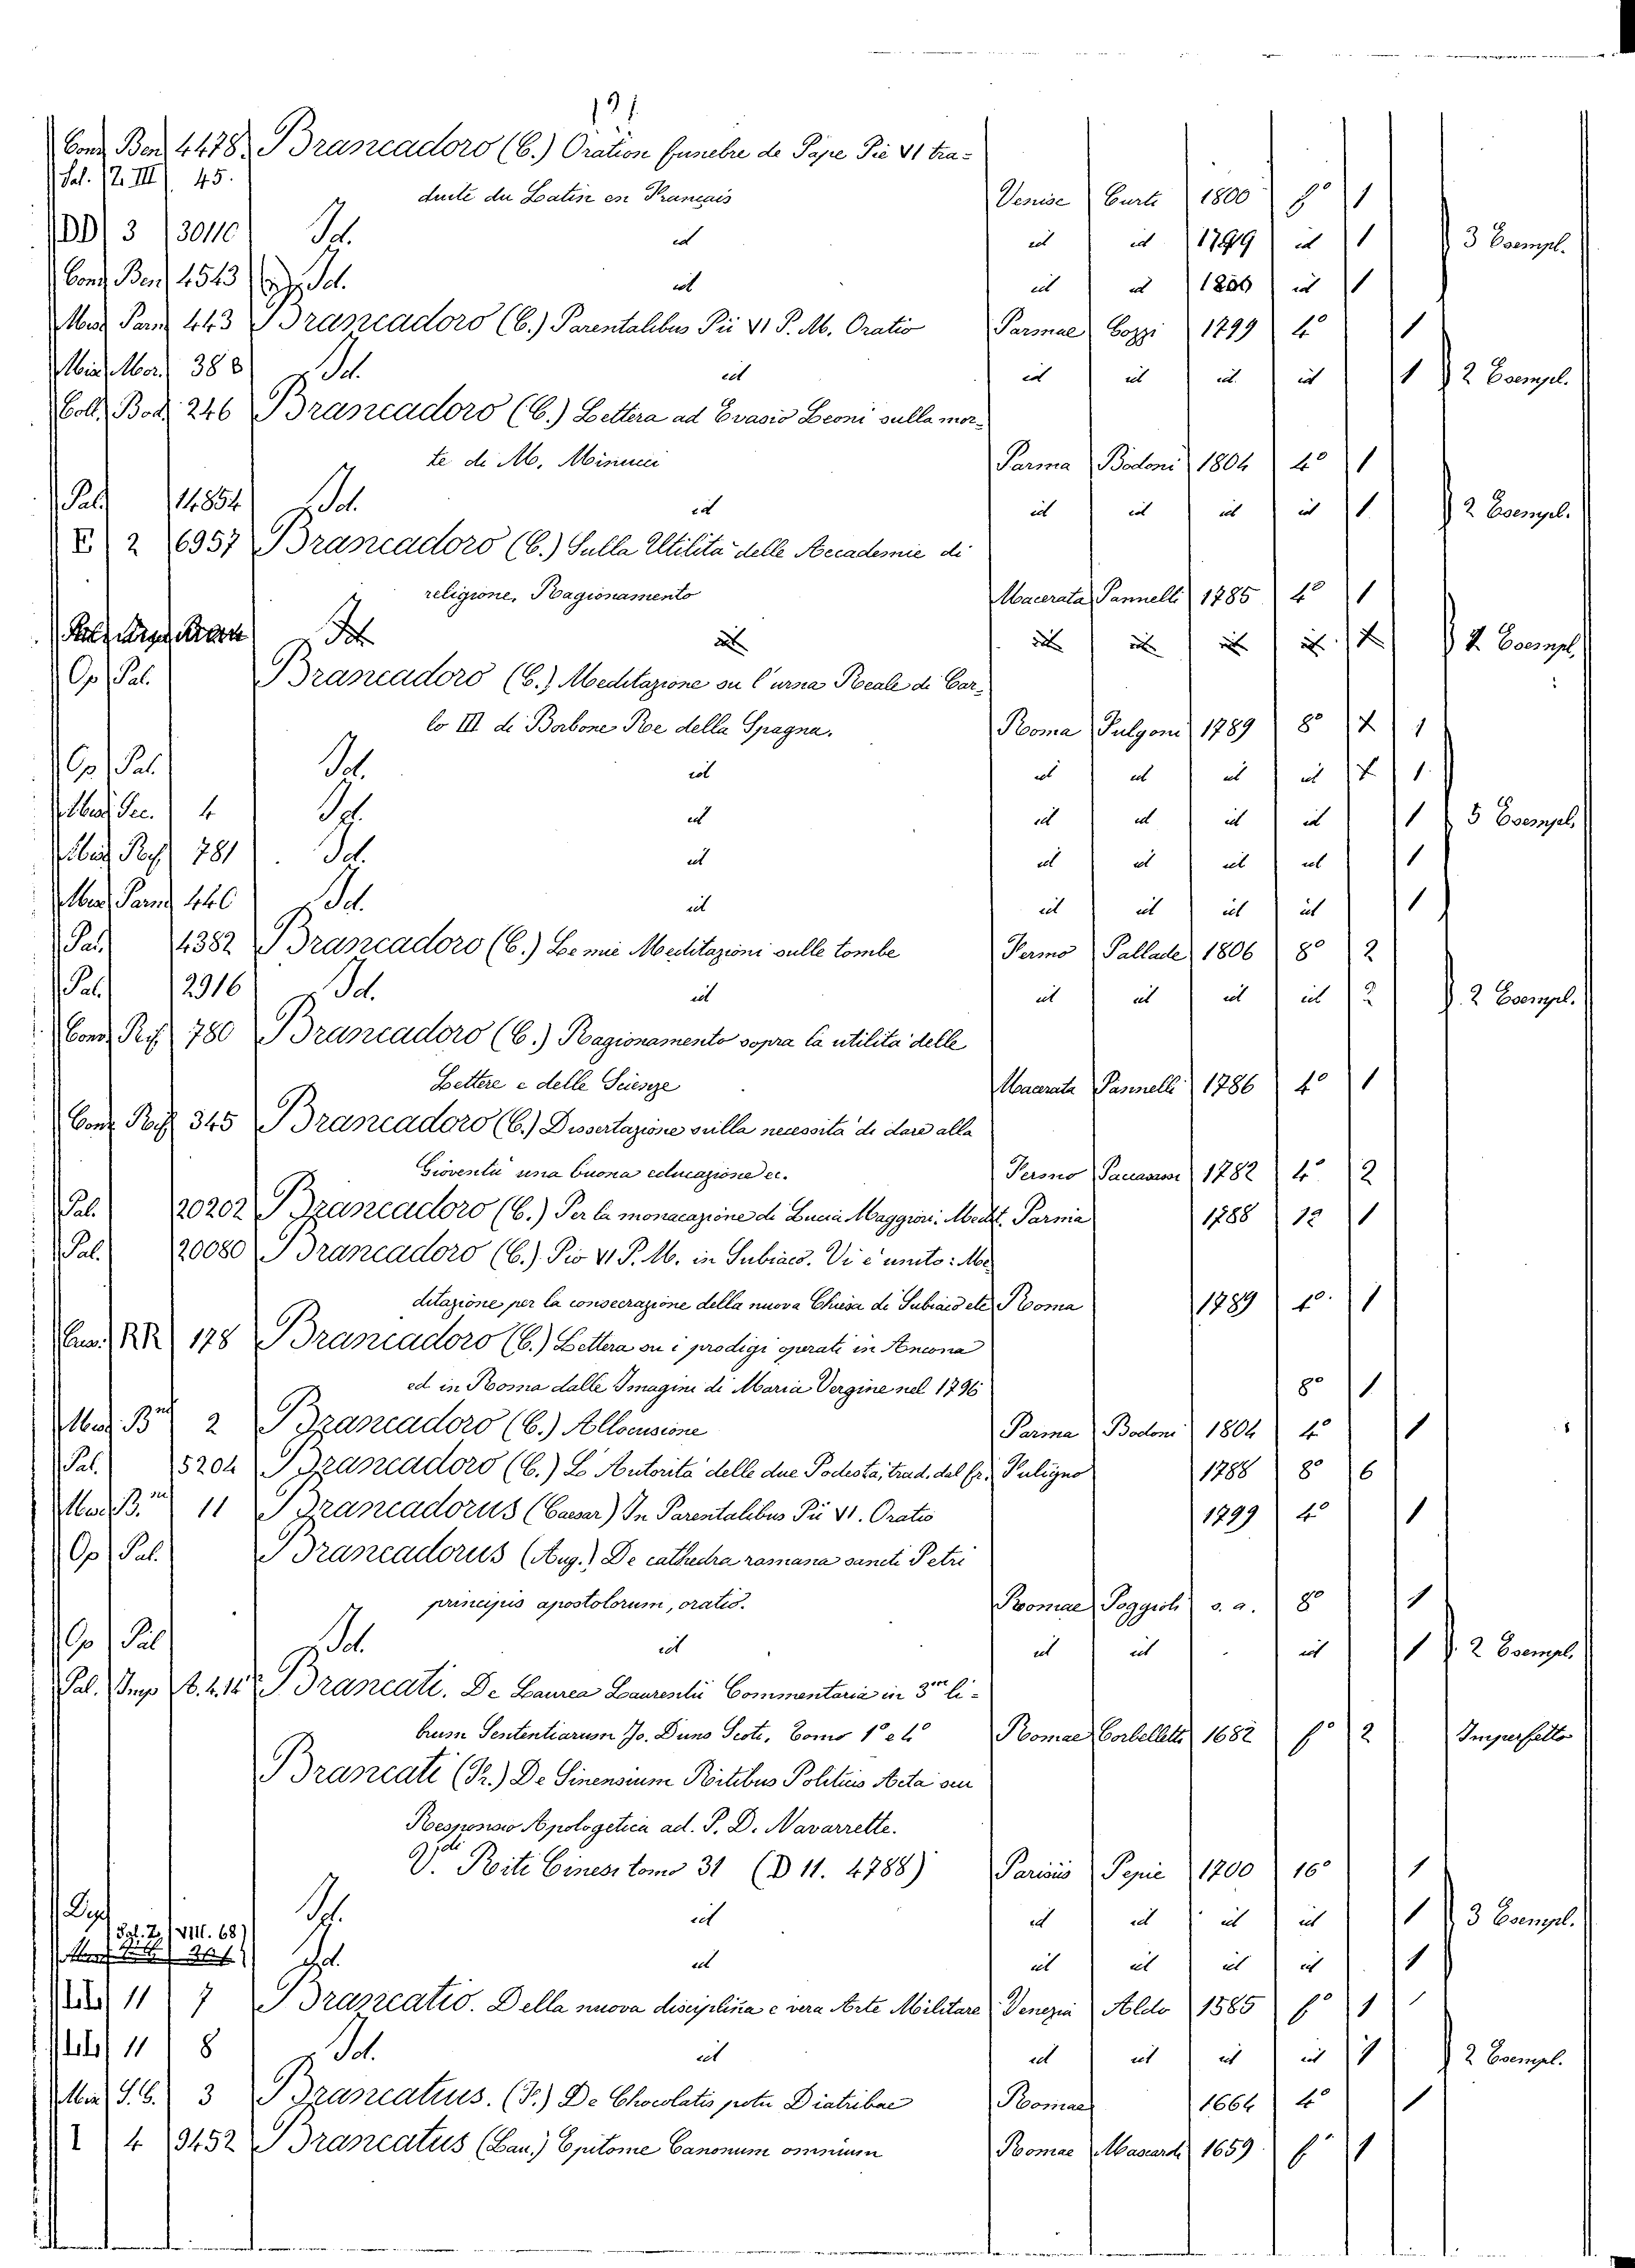 191
Conv. Ben. 4478. Brancadoro (C.) Oration funebre de Pape Pie VI tra-
Sal. Z. III. 45.
duite du Latin en Francais Venise Curti 1800 8° 1
DD 3 30110 Id. id id id 1799 id 1 3 Esempl.
Conv. Ben. 4543 Id. id id id 1800 id 1
Misc. Parm. 443 Brancadoro (C.) Parentalibus Pii VI P. M. Oratio Parmae Gozzi 1799 4° 1
Misc. Mor. 388 Id. id id id id id 1 2 Esempl.
Coll. Bod. 246 Brancadoro (C.) Lettera ad Evasio Leoni sulla mor-
te di M. Minucci Parma Bodoni 1804 4° 1
Pal. 14854 Id. id id id id id 1 2 Esempl.
F 2 6957 Brancadoro (C.) Sulla Utilità delle Accademie di
religione, Ragionamento Macerata Pannelli 1785 4° 1
Id. id id id id id Esempl.
Op. Pal. Brancadoro (C.) Meditazione su l'urna Reale di Car-
lo III di Borbone Re della Spagna. Roma Fulgoni 1789 8° 1
Op. Pal. Id. id id id id id 1
Misc. Sec. 4 Id. id id id id id 1 5 Esempl.
Misc. Ref. 781 Id. id id id id id 1
Misc. Parm. 440 Id. id id id id id 1
Pal. 4382 Brancadoro (C.) Le mie Meditazioni sulle tombe Fermo Pallade 1806 8° 2
Pal. 2916 Id. id id id id id 2 2 Esempl.
Conv. Rif. 780 Brancadoro (C.) Ragionamento sopra la utilità delle
Lettere e delle Scienze Macerata Pannelli 1786 4° 1
Conv. Rif. 345 Brancadoro (C.) Dissertazione sulla necessità di dare alla
Gioventù una buona educazione ec. Fermo Paccasassi 1782 4° 2
Pal. 20202 Brancadoro (C.) Per la monacazione di Lucia Maggiori: Medit. Parma 1788 12 1
Pal. 20080 Brancadoro (C.) Pio VI P. M. in Subiaco. Vi è unito: Me
ditazione per la consecrazione della nuova Chiesa di Subiaco etc Roma 1789 4° 1
RR 178 Brancadoro (C.) Lettera su i prodigi operati in Ancona
ed in Roma dalle Imagini di Maria Vergine nel 1796 8° 1
Misc. Bni 2 Brancadoro (C.) Allocusione Parma Bodoni 1804 4° 1
Pal. 5204 Brancadoro (C.) Le Autorità delle due Podestà, trad. dal fr. Fuligno 1788 8° 6
Misc. B.ni 11 Brancadorus (Caesar) In Parentalibus Pii VI. Oratio 1799 4° 1
Op. Pal. Brancadorus (Aug.) De cathedra romana sancti Petri
principis apostolorum, oratio. Romae Poggioli s. a. 8° 1
Op. Pal. Id. id id id id 1 2 Esempl.
Pal. Imp. Brancati. De Laurea Laurentii Commentaria in 3m li-
brum Sententiarum Jo. Duns Scoti, Tomo 1° e 4° Romae Corbelletti 1682 f° 2 Imperfetto
Brancati (Fr.) De Sinensium Ritibus Politicis Acta seu
Responsio Apologetica ad. P. D. Navarrette.
V.di Riti Cinesi tomo 31 (D 11. 4788) Parisiis Pepie 1700 16° 1
Dep. Id. id id id id id 1 3 Esempl.
Sal. Z. VIII. 68
Id. id id id id id 1
11 7 Brancatio. Della nuova disciplina e vera Arte Militare Venezia Aldo 1585 f° 1
11 8 Id. id id id id id 1 2 Esempl.
Misc. S. C. 3 Brancatius. (F.) De Chocolatis potu Diatribae Romae 1664 4° 1
I 4 9452 Brancatus (Lau.) Epitome Canonum omnium Romae Mascardi 1659 f° 1